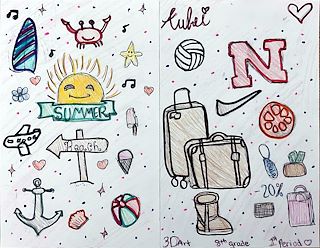 SUMMER
Beach
Aubei
N
20%
3D Art 8th grade 1st Period